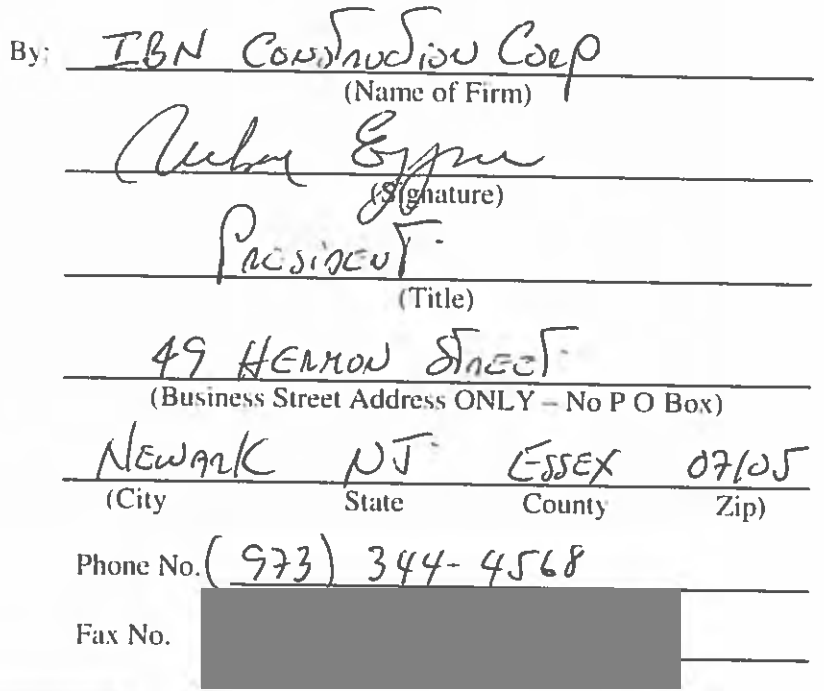 By: IBN Construction Corp
(Name of Firm)
(Signature)
President
(Title)
49 HERMON STREET
(Business Street Address ONLY – No P O Box)
NEWARK NJ ESSEX 07105
(City State County Zip)
Phone No. (973) 344-4568
Fax No.